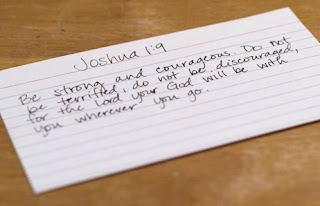 Joshua 1:9
Be strong and courageous. Do not
be terrified, do not be discouraged,
for the Lord your God will be with
you wherever you go.